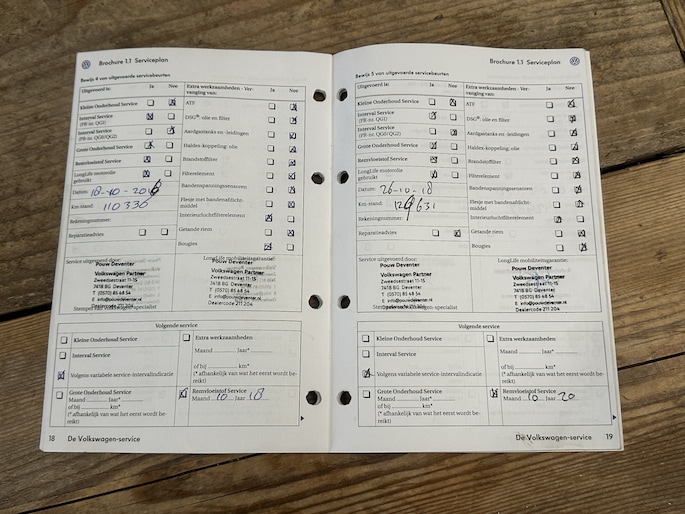 Brochure 1.1 Serviceplan
Bewijs 4 van uitgevoerde servicebeurten
Uitgevoerd is: Ja Nee
Kleine Onderhoud Service
Interval Service
(PR-nr. QG1)
Interval Service
(PR-nr. QG0/QG2)
Grote Onderhoud Service
Remvloeistof Service
LongLife motorolie
gebruikt
Datum: 18-10-
Km-stand: 110330
Rekeningnummer:
Reparatieadvies
Extra werkzaamheden - Ver-
vanging van: Ja Nee
ATF
DSG®: olie en filter
Aardgastanks en -leidingen
Haldex-koppeling: olie
Brandstoffilter
Filterelement
Bandenspanningssensoren
Flesje met bandenafdicht-
middel
Interieurluchtfilterelement
Getande riem
Bougies
Service uitgevoerd door:
Pouw Deventer
Volkswagen Partner
Zweedsestraat 11-15
7418 BG Deventer
T (0570) 85 68 54
E info@pouwdeventer.nl
Dealercode 211 204
LongLife mobiliteitsgarantie:
Pouw Deventer
Volkswagen Partner
Zweedsestraat 11-15
7418 BG Deventer
T (0570) 85 68 54
E info@pouwdeventer.nl
Dealercode 211 204
Volgende service
Kleine Onderhoud Service
Interval Service
Volgens variabele service-intervalindicatie
Extra werkzaamheden
Maand Jaar*
of bij km*
(* afhankelijk van wat het eerst wordt be-
reikt)
Grote Onderhoud Service
Maand Jaar*
of bij km*
(* afhankelijk van wat het eerst wordt be-
reikt)
Remvloeistof Service
Maand 10 Jaar 18
18 De Volkswagen-service
Brochure 1.1 Serviceplan
Bewijs 5 van uitgevoerde servicebeurten
Uitgevoerd is: Ja Nee
Kleine Onderhoud Service
Interval Service
(PR-nr. QG1)
Interval Service
(PR-nr. QG0/QG2)
Grote Onderhoud Service
Remvloeistof Service
LongLife motorolie
gebruikt
Datum: 26-10-18
Km-stand:
Rekeningnummer:
Reparatieadvies
Extra werkzaamheden - Ver-
vanging van: Ja Nee
ATF
DSG®: olie en filter
Aardgastanks en -leidingen
Haldex-koppeling: olie
Brandstoffilter
Filterelement
Bandenspanningssensoren
Flesje met bandenafdicht-
middel
Interieurluchtfilterelement
Getande riem
Bougies
Service uitgevoerd door:
Pouw Deventer
Volkswagen Partner
Zweedsestraat 11-15
7418 BG Deventer
T (0570) 85 68 54
E info@pouwdeventer.nl
Dealercode 211 204
LongLife mobiliteitsgarantie:
Pouw Deventer
Volkswagen Partner
Zweedsestraat 11-15
7418 BG Deventer
T (0570) 85 68 54
E info@pouwdeventer.nl
Dealercode 211 204
Volgende service
Kleine Onderhoud Service
Interval Service
Volgens variabele service-intervalindicatie
Extra werkzaamheden
Maand Jaar*
of bij km*
(* afhankelijk van wat het eerst wordt be-
reikt)
Grote Onderhoud Service
Maand Jaar*
of bij km*
(* afhankelijk van wat het eerst wordt be-
reikt)
Remvloeistof Service
Maand 10 Jaar 20
De Volkswagen-service 19